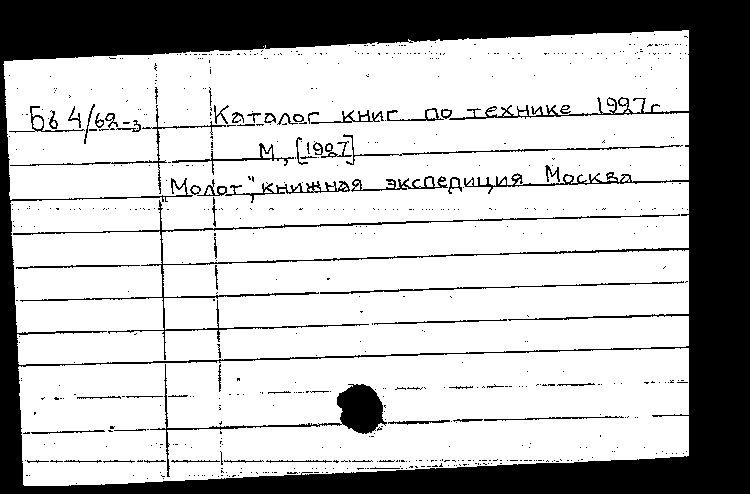 Бв 4/62-3 Каталог книг по технике 1927г
М., [1927]
„Молот", книжная экспедиция. Москва